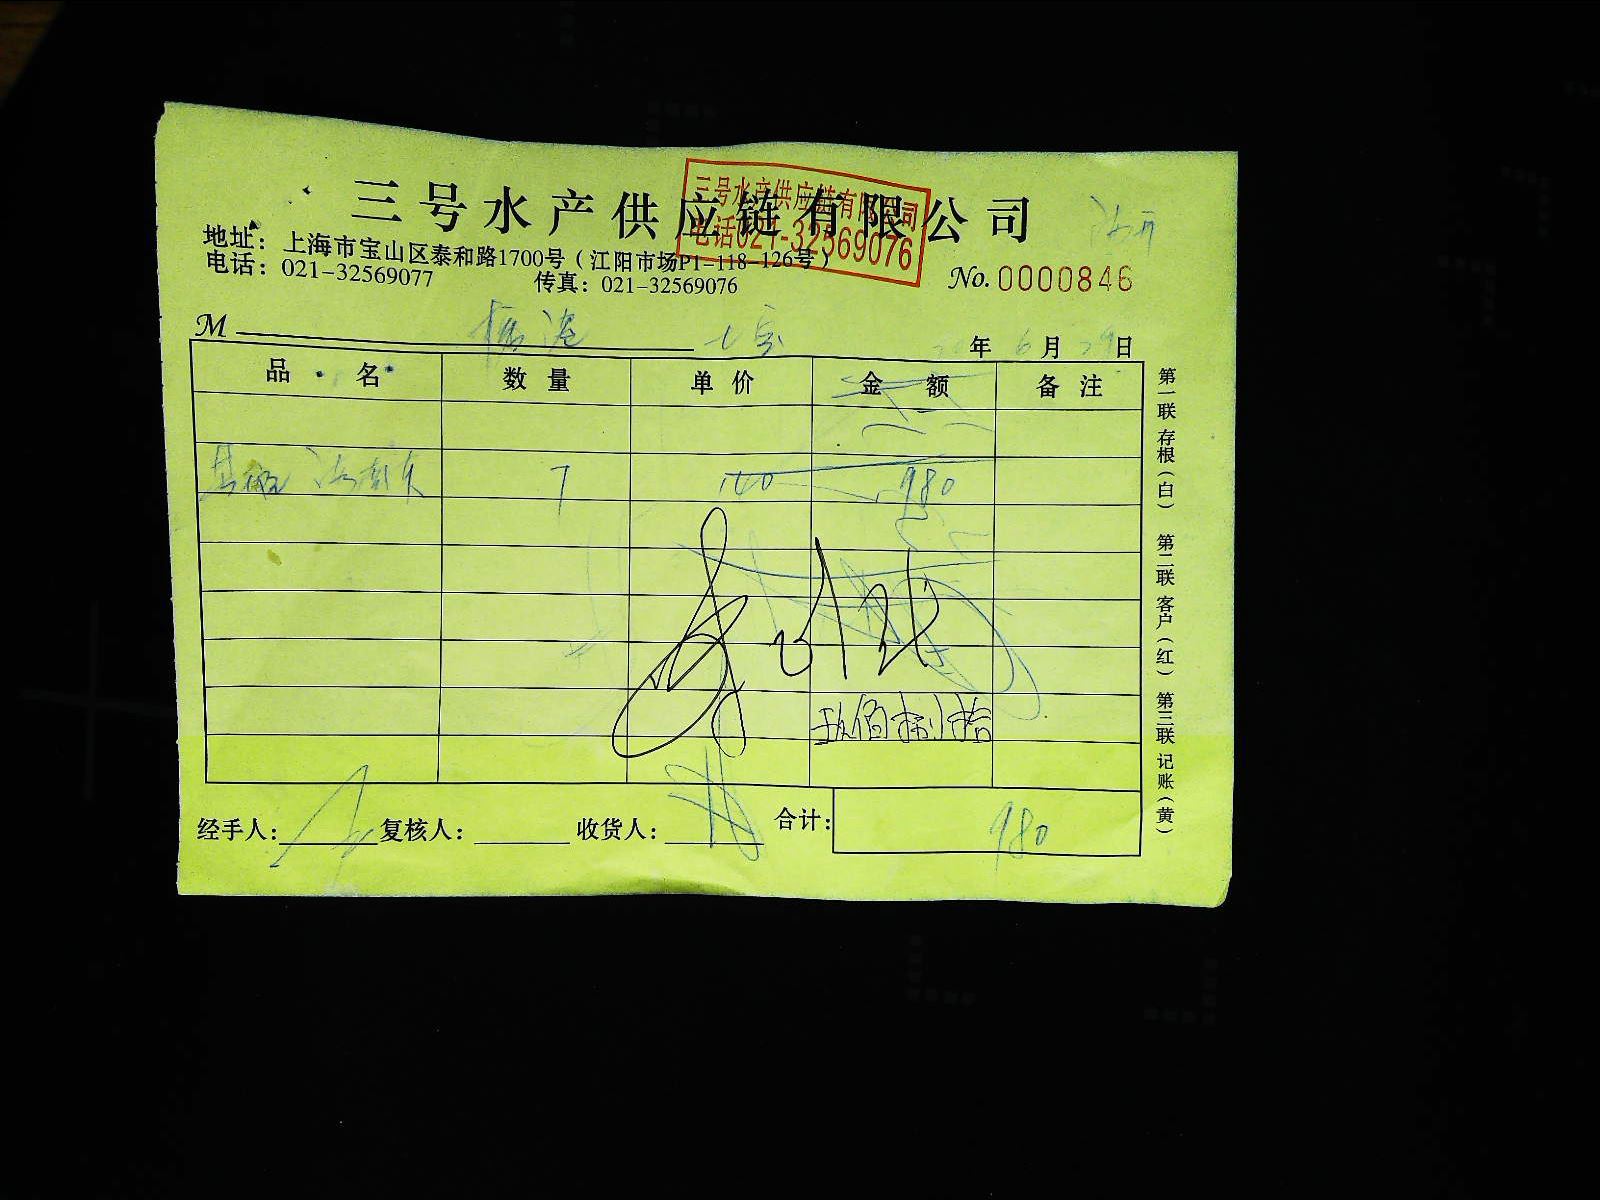 三号水产供应链有限公司
三号水产供应链有限公司
电话021-32569076
地址：上海市宝山区泰和路1700号（江阳市场P1-118-126号）
电话：021-32569077 传真：021-32569076
No.0000846
M 年 6 月 29 日
品名 数量 单价 金额 备注
7 140 980
玖佰捌拾
经手人： 复核人： 收货人： 合计： 980
第一联 存根（白） 第二联 客户（红） 第三联 记账（黄）